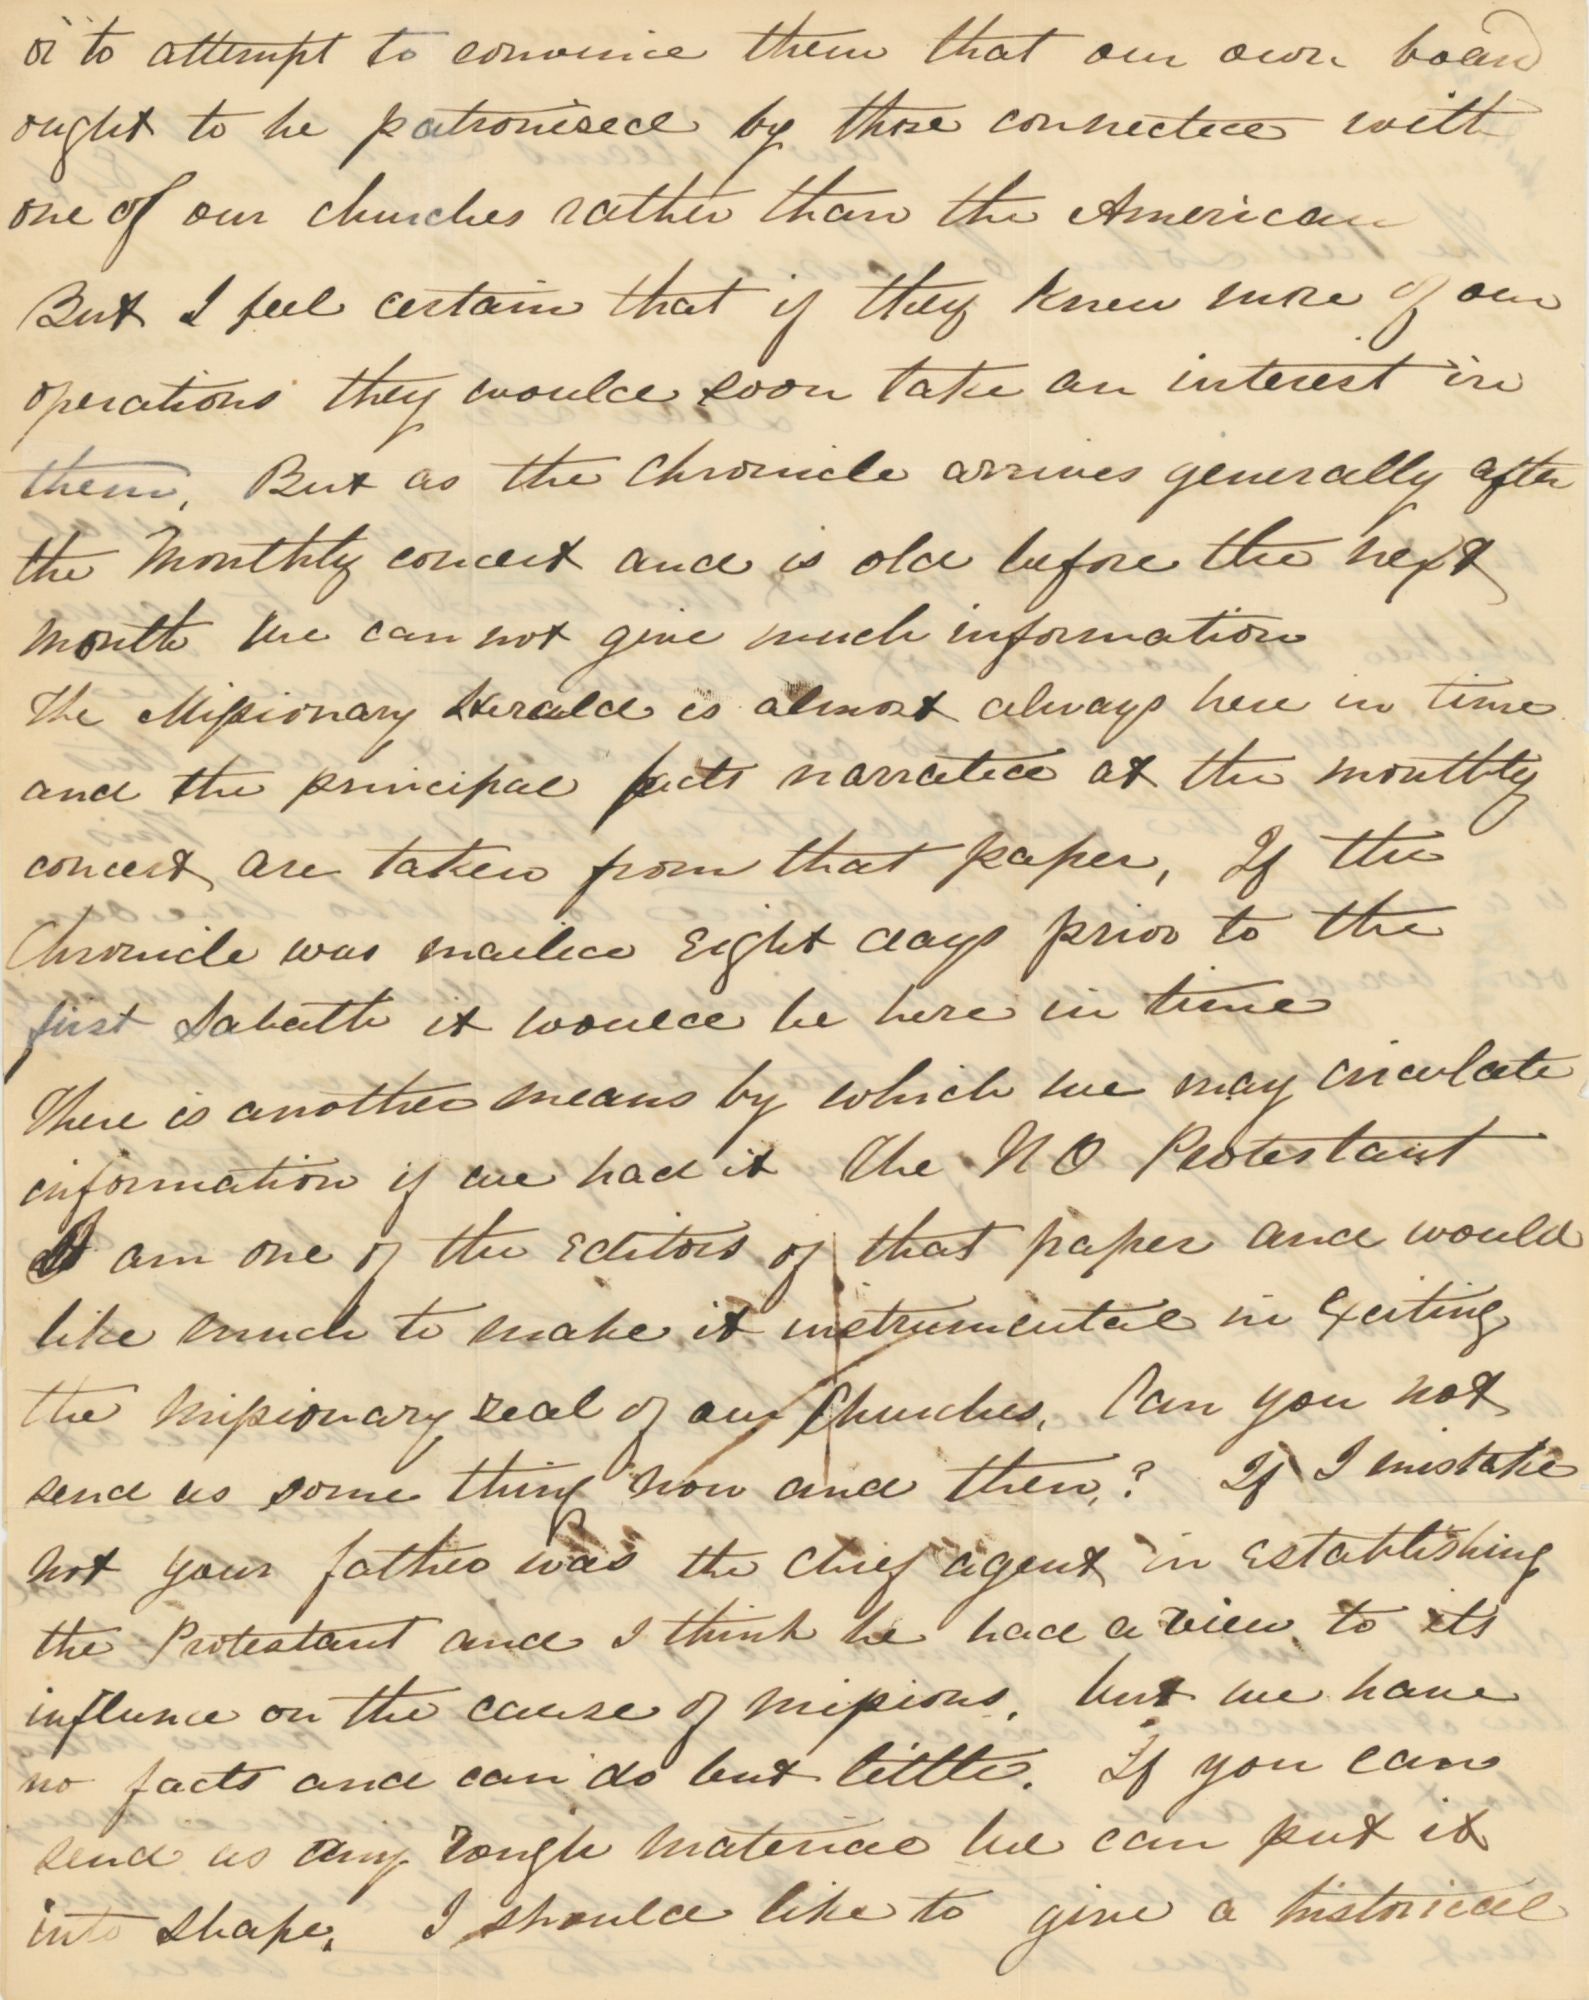 or to attempt to convince them that our own board
ought to be patronised by those connected with
one of our churches rather than the American
But I feel certain that if they knew more of our
operations they would soon take an interest in
them, But as the Chronicle arrives generally after
the Monthly concert and is old before the next
month we can not give much information
The Missionary Herald is almost always here in time
and the principal facts narrated at the monthly
concert are taken from that paper, If the
Chronicle was mailed Eight days prior to the
first Sabath it would be here in time
There is another means by which we may circulate
information if we had it The N O Protestant
I am one of the Editors of that paper and would
like much to make it instrumental in Exciting
the missionary zeal of our Churches, Can you not
send us some thing now and then,? If I mistake
not your father was the chief agent in Establishing
the Protestant and I think he had a view to its
influence on the cause of missions, but we have
no facts and can do but little. If you can
send us any rough material we can put it
into shape, I should like to give a historical